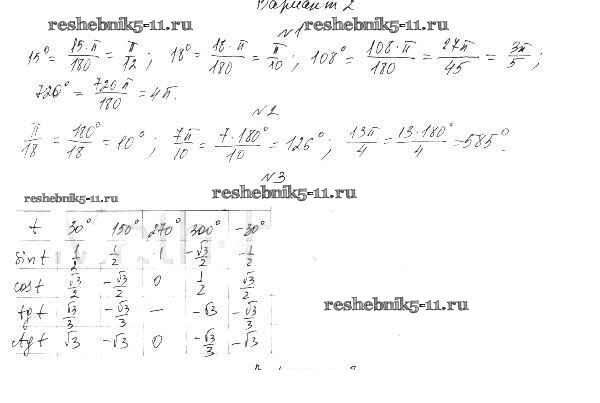 Вариант 2
reshebnik5-11.ru
№1
reshebnik5-11.ru
15° = 15·π/180 = π/12; 18° = 18·π/180 = π/10; 108° = 108·π/180 = 27π/45 = 3π/5;
720° = 720π/180 = 4π.
№2
π/18 = 180°/18 = 10°; 7π/10 = 7·180°/10 = 126°; 13π/4 = 13·180°/4 = 585°.
№3
reshebnik5-11.ru
reshebnik5-11.ru
t 30° 150° 270° 300° -30°
sin t 1/2 1/2 -1 -√3/2 -1/2
cos t √3/2 -√3/2 0 1/2 √3/2
tg t √3/3 -√3/3 — -√3 -√3/3
ctg t √3 -√3 0 -√3/3 -√3
reshebnik5-11.ru